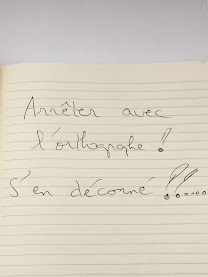 Arrêter avec
l'orthographe !
S'en déconné !!!.....